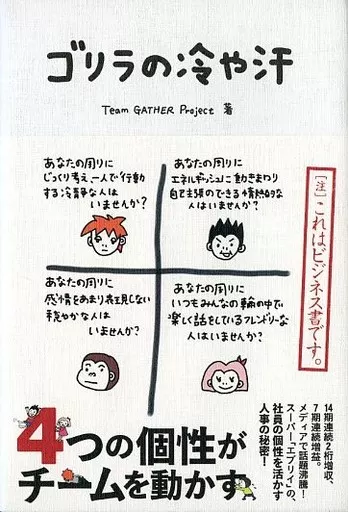 ゴリラの冷や汗
Team GATHER Project 著
あなたの周りに
じっくり考え、一人で行動
する冷静な人は
いませんか？
あなたの周りに
エネルギッシュに動きまわり
自己主張のできる情熱的な
人はいませんか？
[注]これはビジネス書です。
あなたの周りに
感情をあまり表現しない
穏やかな人は
いませんか？
あなたの周りに
いつもみんなの輪の中で
楽しく話をしているフレンドリーな
人はいませんか？
4つの個性が
チームを動かす
14期連続2桁増収、
7期連続増益。
メディアで話題沸騰！
スーパー「エブリイ」の、
社員の個性を活かす
人事の秘密！